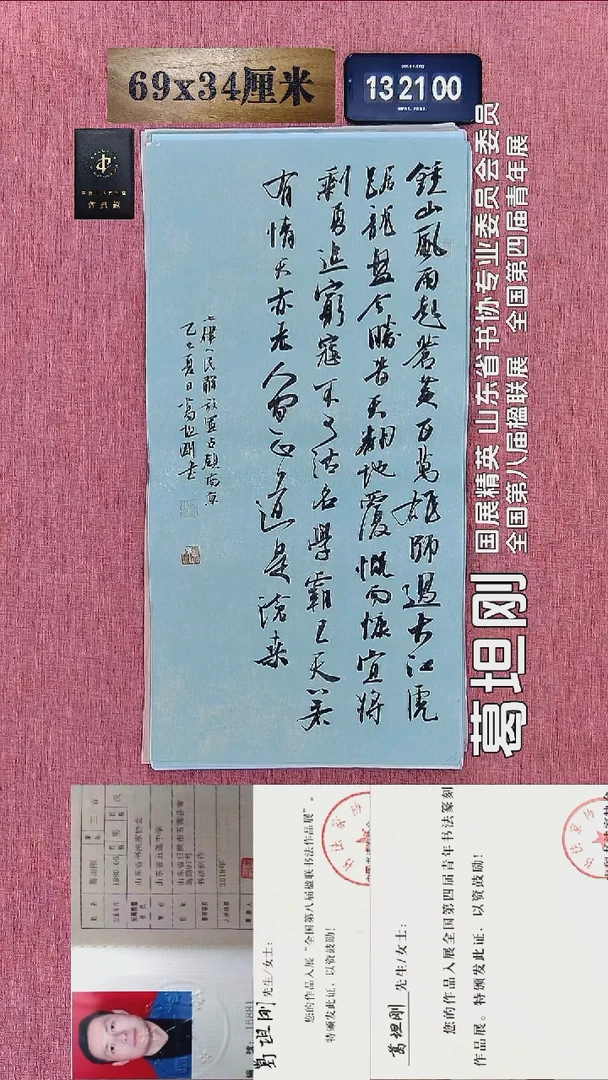 69x34厘米
13 21 00
鍾山風雨起蒼黃百萬雄師過大江虎
踞龍盤今勝昔天翻地覆慨而慷宜將
剩勇追窮寇不可沽名學霸王天若
有情天亦老人間正道是滄桑
七律人民解放軍占領南京
乙巳夏日葛坦剛書
葛坦刚
国展精英 山东省书协专业委员会委员
全国第八届楹联展 全国第四届青年展
葛坦刚 先生/女士:
您的作品入展“全国第八届楹联书法作品展”。
特颁发此证, 以资鼓励!
葛坦刚 先生/女士:
您的作品入展全国第四届青年书法篆刻
作品展。特颁发此证, 以资鼓励!